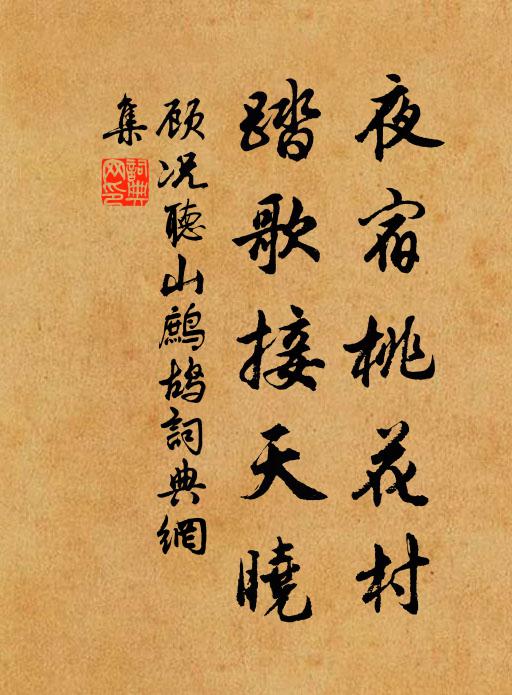 夜宿桃花村
踏歌接天曉
顾况聽山鷓鴣詞典網
集
詞典網印